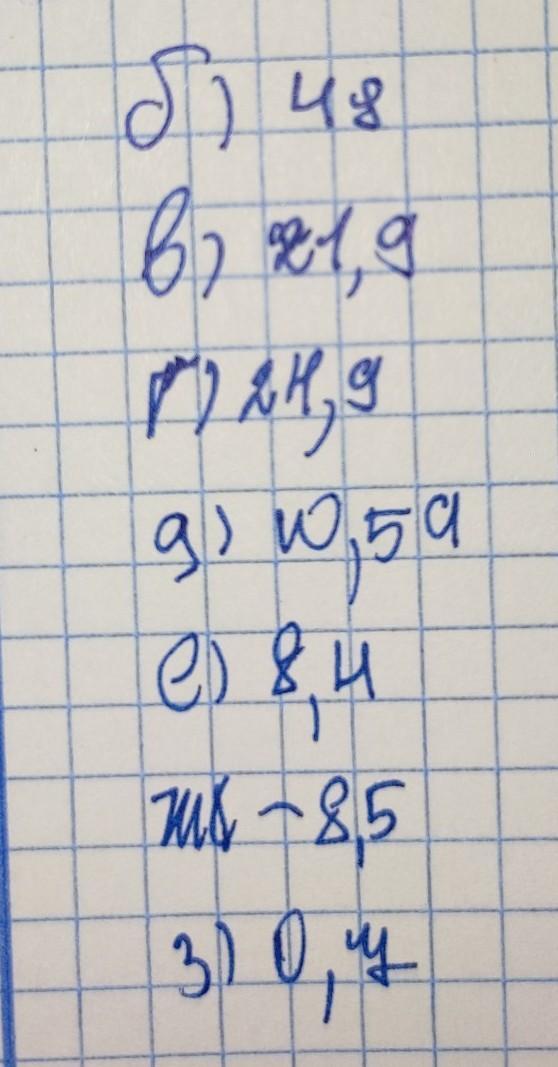 б) 48
в) 21,9
г) 24,9
д) 10,59
е) 8,4
ж -8,5
з) 0,4